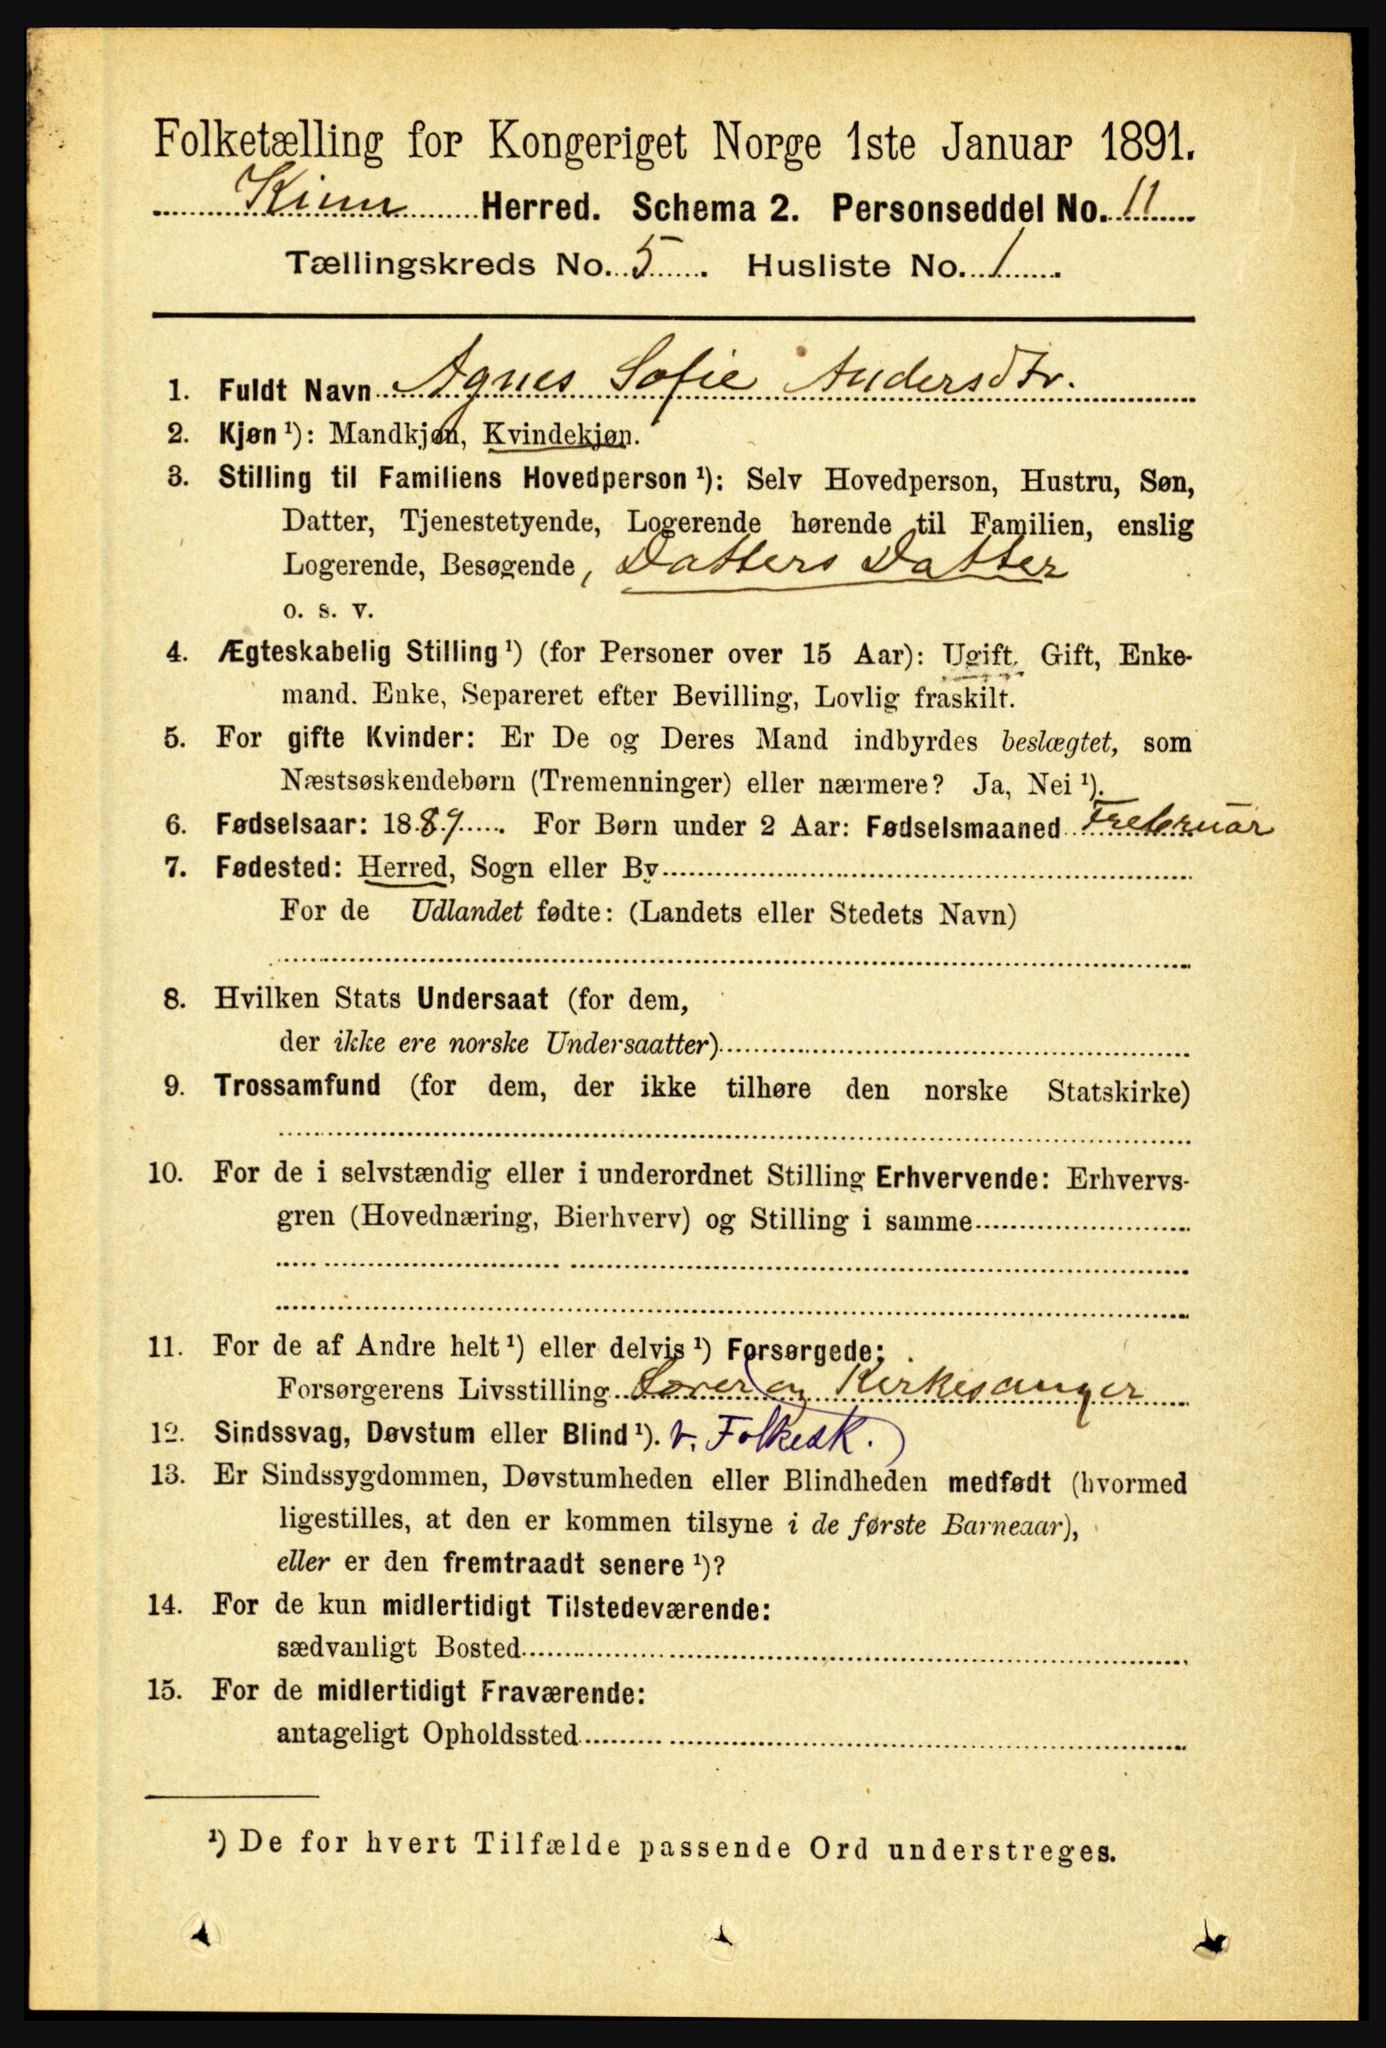 Folketælling for Kongeriget Norge 1ste Januar 1891.
Kinn Herred. Schema 2. Personseddel No. 11
Tællingskreds No. 5. Husliste No. 1
1. Fuldt Navn Agnes Sofie Andersdtr.
2. Kjøn ¹): Mandkjøn, Kvindekjøn.
3. Stilling til Familiens Hovedperson ¹): Selv Hovedperson, Hustru, Søn,
Datter, Tjenestetyende, Logerende hørende til Familien, enslig
Logerende, Besøgende, Datters Datter
o. s. v.
4. Ægteskabelig Stilling ¹) (for Personer over 15 Aar): Ugift, Gift, Enke-
mand. Enke, Separeret efter Bevilling, Lovlig fraskilt.
5. For gifte Kvinder: Er De og Deres Mand indbyrdes beslægtet, som
Næstsøskendebørn (Tremenninger) eller nærmere? Ja, Nei ¹).
6. Fødselsaar: 1889. For Børn under 2 Aar: Fødselsmaaned Frebruar
7. Fødested: Herred, Sogn eller By
For de Udlandet fødte: (Landets eller Stedets Navn)
8. Hvilken Stats Undersaat (for dem,
der ikke ere norske Undersaatter)
9. Trossamfund (for dem, der ikke tilhøre den norske Statskirke)
10. For de i selvstændig eller i underordnet Stilling Erhvervende: Erhvervs-
gren (Hovednæring, Bierhverv) og Stilling i samme
11. For de af Andre helt ¹) eller delvis ¹) Forsørgede:
Forsørgerens Livsstilling Lærer og Kirkesanger
12. Sindssvag, Døvstum eller Blind ¹). v. Folkesk.)
13. Er Sindssygdommen, Døvstumheden eller Blindheden medfødt (hvormed
ligestilles, at den er kommen tilsyne i de første Barneaar),
eller er den fremtraadt senere ¹)?
14. For de kun midlertidigt Tilstedeværende:
sædvanligt Bosted
15. For de midlertidigt Fraværende:
antageligt Opholdssted
¹) De for hvert Tilfælde passende Ord understreges.